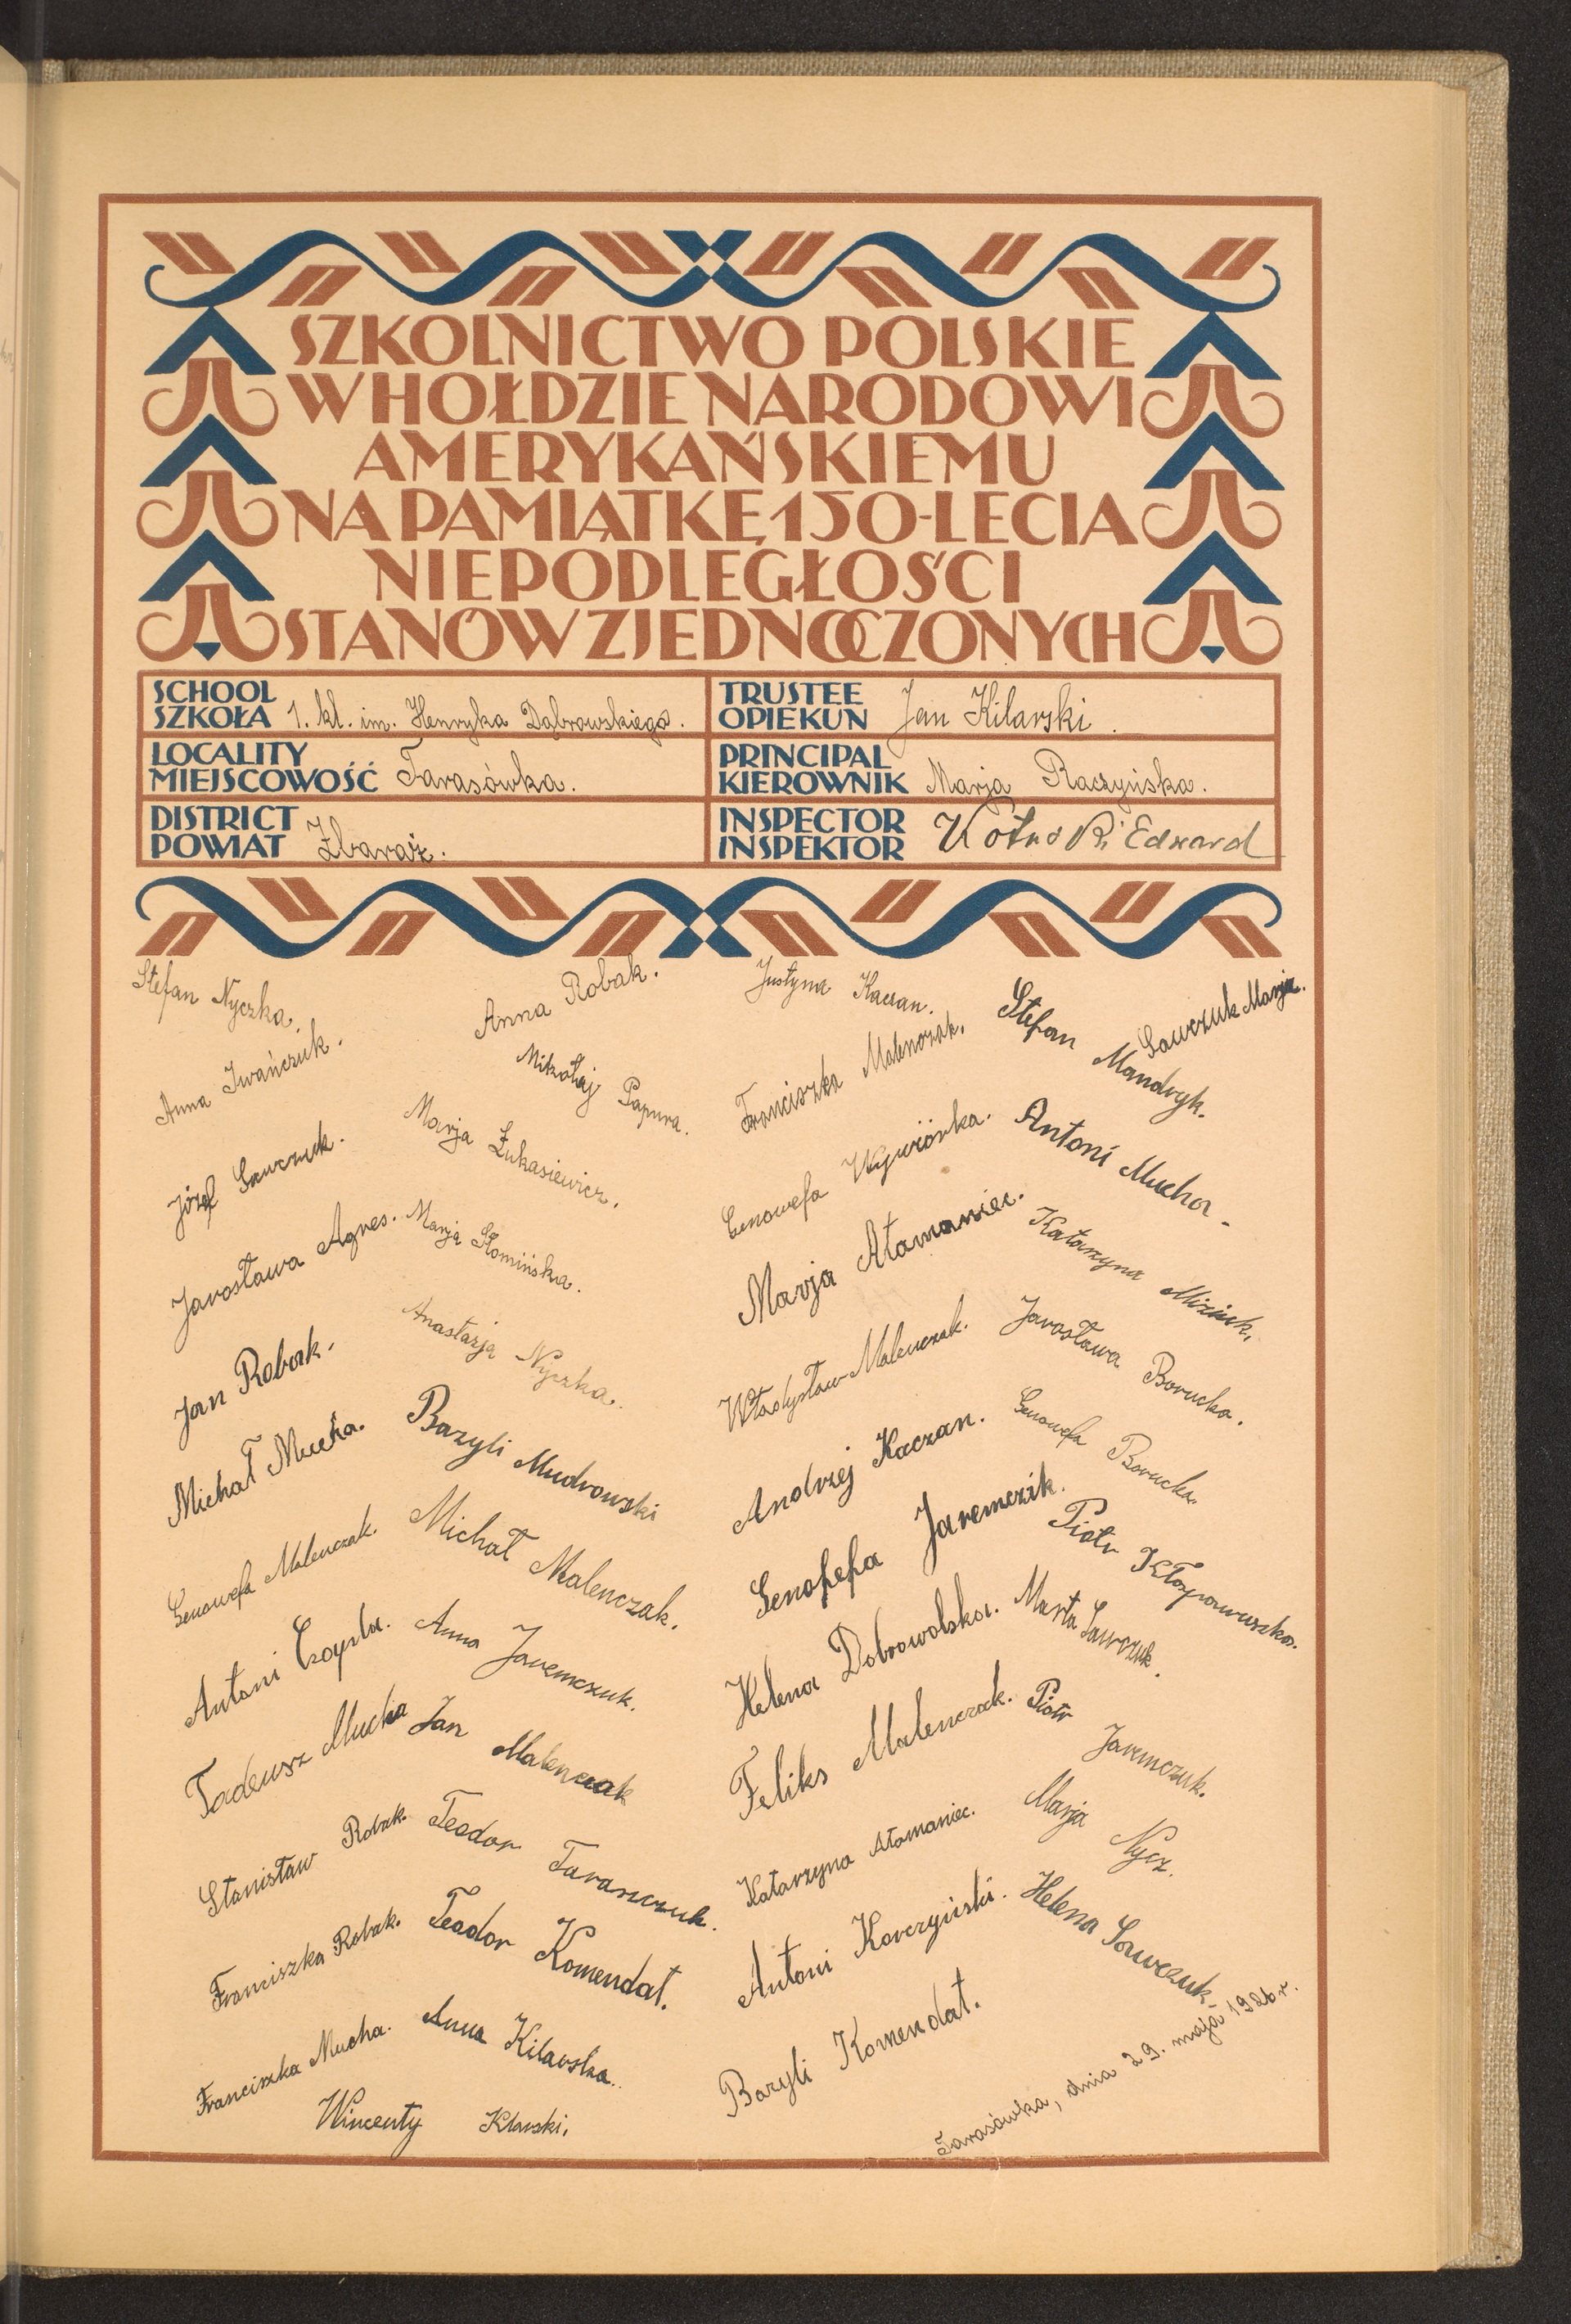 SZKOLNICTWO POLSKIE
W HOŁDZIE NARODOWI
AMERYKAŃSKIEMU
NA PAMIĄTKĘ 150-LECIA
NIEPODLEGŁOŚCI
STANÓW ZJEDNOCZONYCH
SCHOOL
SZKOŁA 1. kl. im. Henryka Dąbrowskiego.
TRUSTEE
OPIEKUN Jan Kilarski.
LOCALITY
MIEJSCOWOŚĆ Tarasówka.
PRINCIPAL
KIEROWNIK Marja Raczyńska.
DISTRICT
POWIAT Zbaraż.
INSPECTOR
INSPEKTOR Edward
Stefan Nyczka.
Anna Iwańczuk.
Józef Sawczuk.
Jarosława Agres.
Jan Robak.
Michał Mucha.
Genowefa Malenczak.
Antoni
Tadeusz Mucha
Stanisław Robak.
Franciszka Robak.
Franciszka Mucha.
Wincenty Kilarski.
Anna Robak.
Mikołaj Papura.
Marja Łukasiewicz.
Marja Słomińska.
Anastazja Nyczka.
Bazyli Mudrowski
Michał Malenczak.
Anna Jaremczuk.
Jan Malenczak
Teodor Taraszczuk.
Teodor Komendat.
Anna Kilarska.
Justyna Kaczan.
Franciszka Malenczak.
Genowefa Wywiórka.
Marja Atamaniec.
Władysław Malenczak.
Andrzej Kaczan.
Genofefa Jaremczik.
Helena Dobrowolska.
Feliks Malenczak.
Katarzyna Atamaniec.
Antoni Korczyński.
Bazyli Komendat.
Sawczuk Marja.
Stefan Mandryk.
Antoni Mucha.
Katarzyna Miziuk.
Jarosława Borucka.
Genowefa Borucka.
Piotr
Marta Sawczuk.
Piotr Jaremczuk.
Marja Nycz.
Helena Sawczuk.
Tarasówka, dnia 29. maja 1926 r.